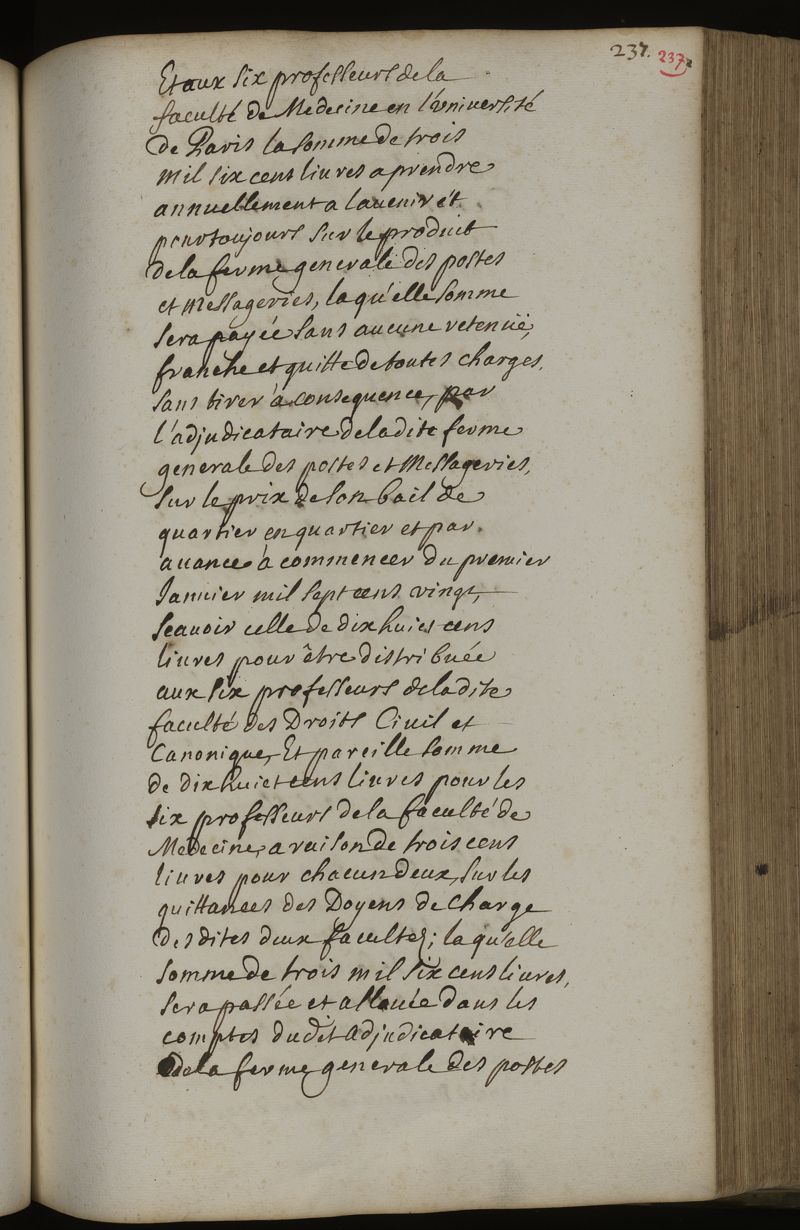 237. 237.
Et aux six professeurs de la
faculté de Medecine en l'université
de Paris la somme de trois
mil six cens livres a prendre
annuellement a lavenir et
pour toujours sur le produit
de la ferme generale des postes
et Messageries, laqu'elle somme
sera payée sans aucune retenuë,
franche et quitte de toutes charges,
sans tirer à consequence, par
l'adjudicataire de ladite ferme
generale des postes et Messageries,
sur le prix de son bail de
quartier en quartier et par
auance à commencer du premier
Januier mil sept cens vingt,
scauoir celle de dix huict cens
liures pour être distribuée
aux six professeurs de ladite
faculté des Droits Ciuil et
Canonique, Et pareille somme
de dix huict cens liures pour les
six professeurs de la faculté de
Medecine, a raison de trois cens
liures pour chacun deux, sur les
quittances des Doyens de charge
des dites deux facultés; laqu'elle
somme de trois mil six cens liures,
sera passée et allouée dans les
comptes dudit adjudicataire
de la ferme generale des postes